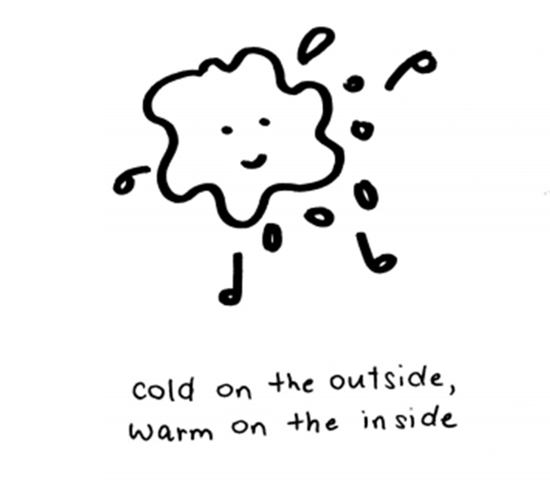 cold on the outside,
warm on the inside